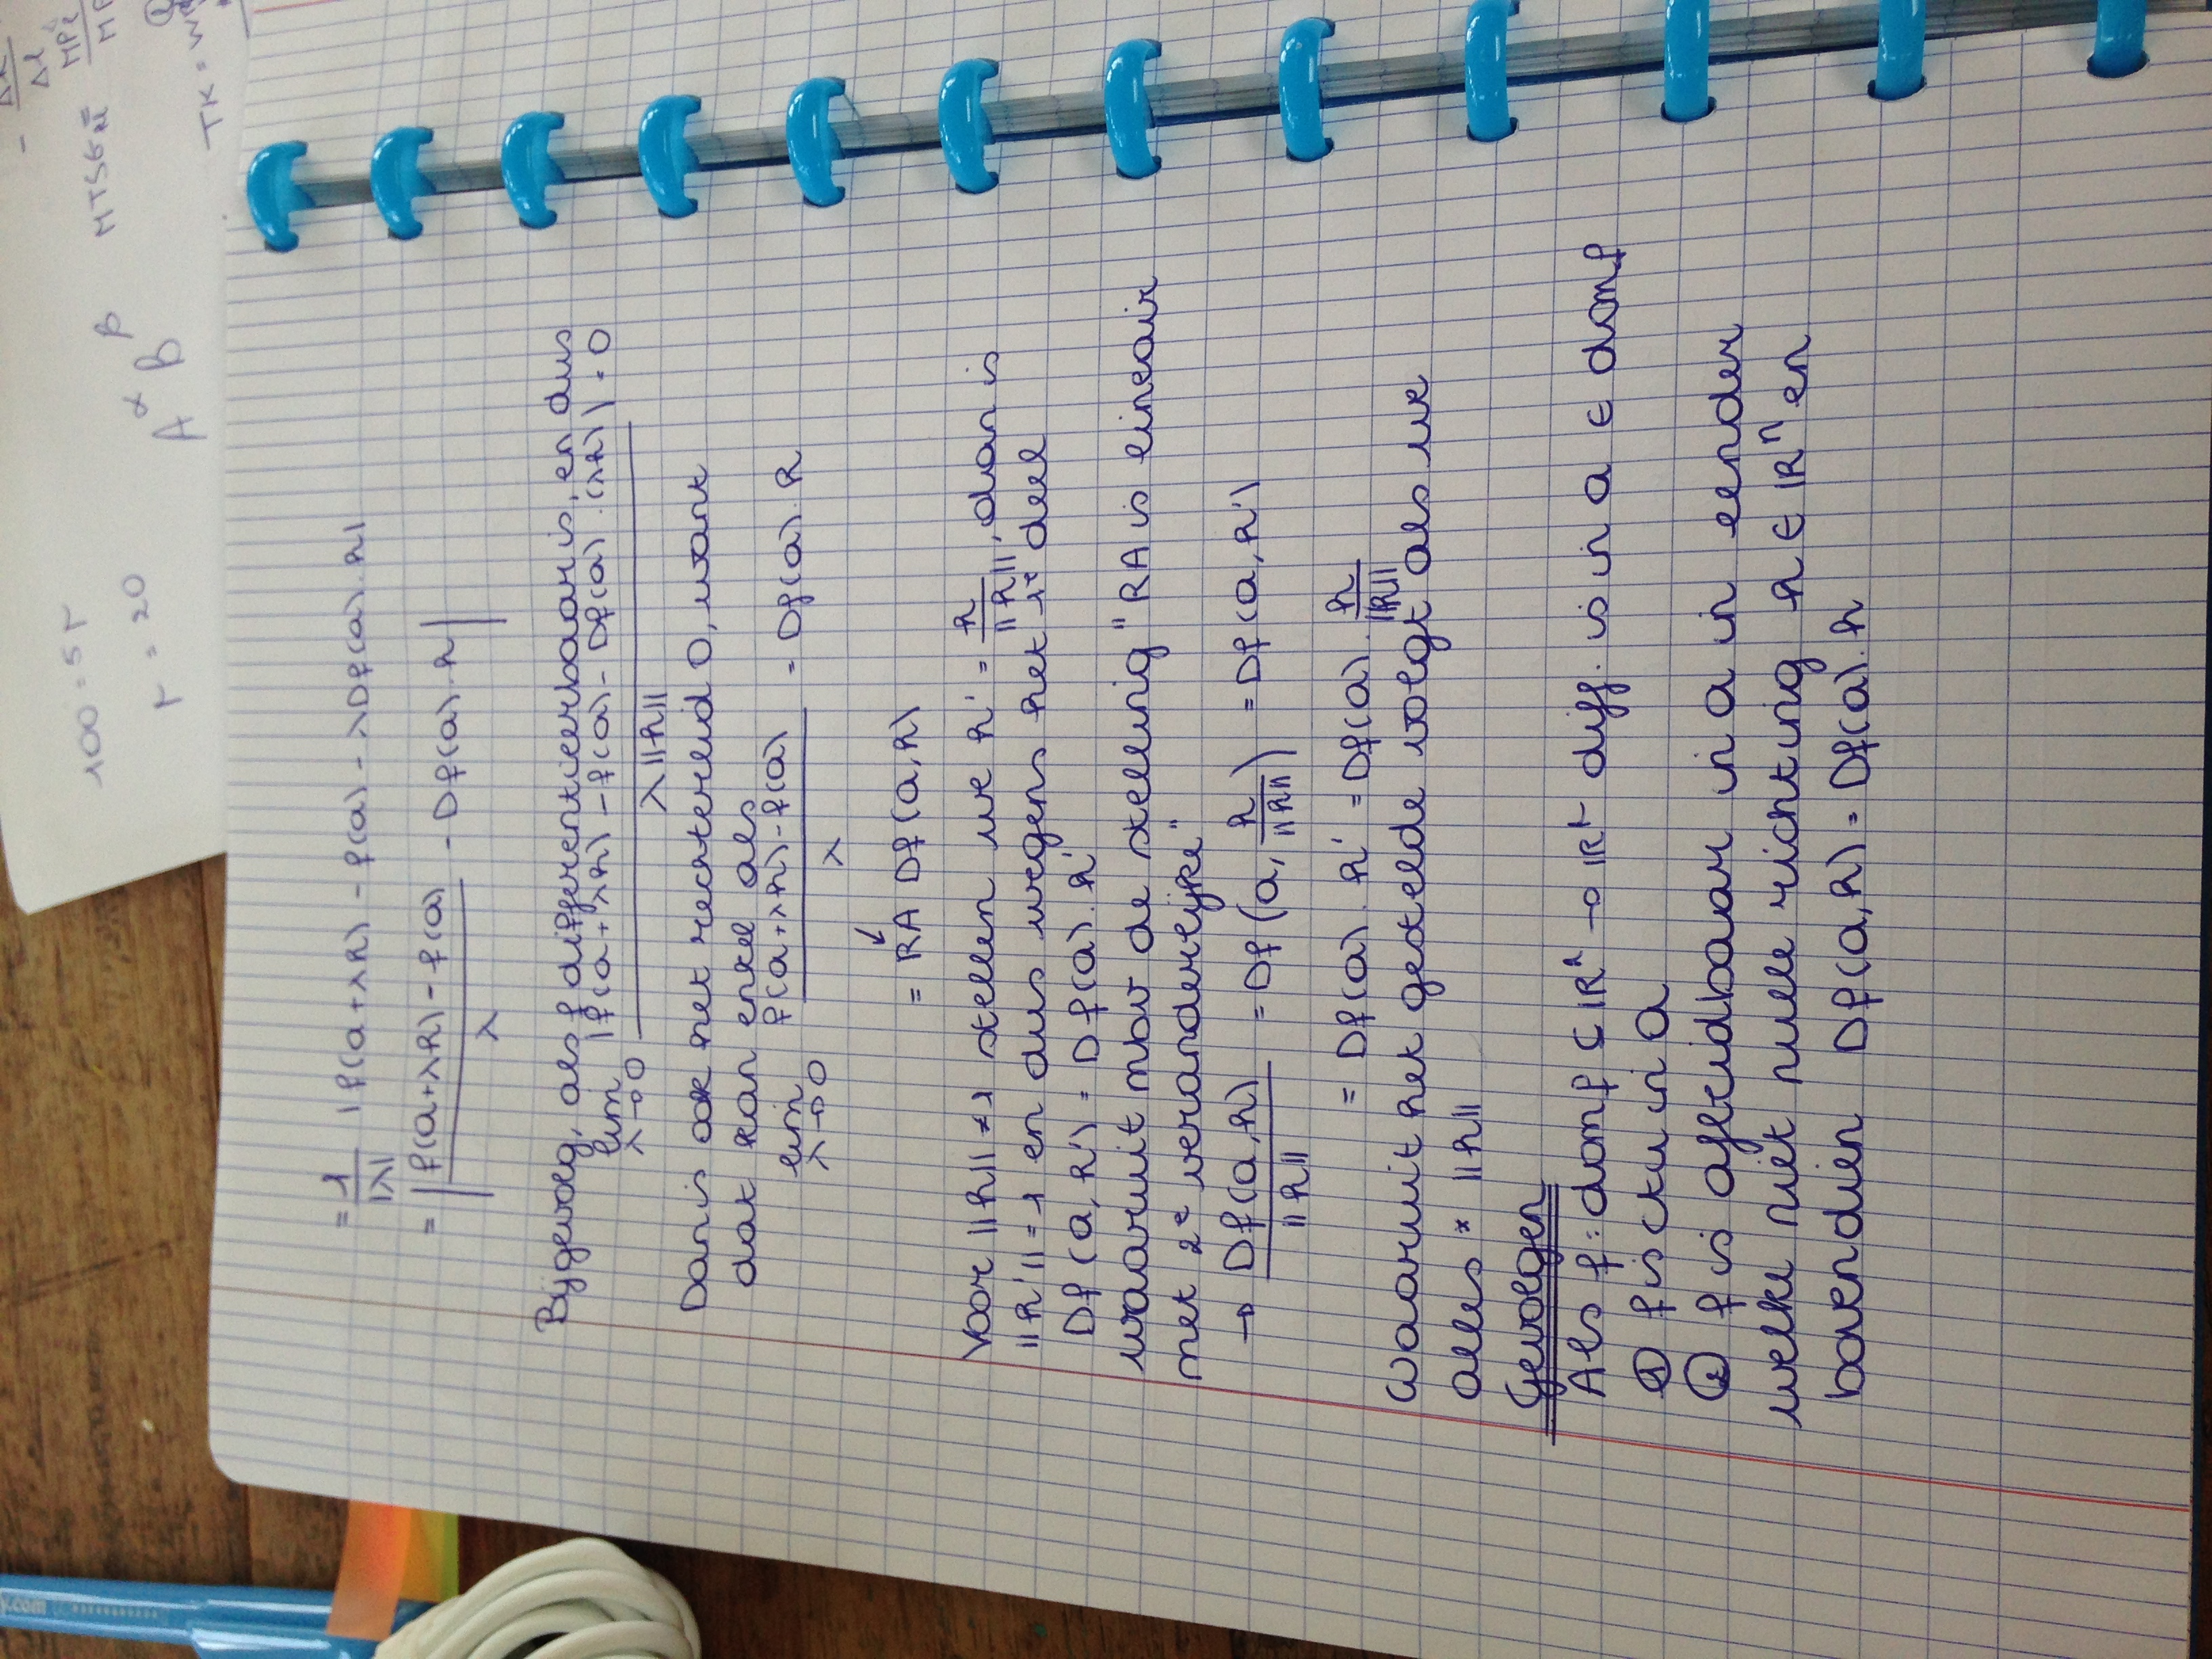 100 = 5r
r = 20
A^α B^β
MTSGRĒ
TK = W
= 1/|λ| |f(a+λh) - f(a) - λDf(a).h|
= |f(a+λh) - f(a)/λ - Df(a).h|
Bijgevolg, als f differentieerbaar is, en dus
lim λ→0 |f(a+λh) - f(a) - Df(a).(λh)|/λ||h|| = 0
Dan is ook het rechterlid 0, want
dat kan enkel als
lim λ→0 f(a+λh)-f(a)/λ - Df(a).h
= RA Df(a,h)
Voor ||h|| ≠ 1 stellen we h' = h/||h||, dan is
||h'|| = 1 en dus wegens het 1e deel
Df(a,h') = Df(a).h'
waaruit mbv de stelling "RA is lineair
met 2e veranderlijke"
→ Df(a,h)/||h|| = Df(a, h/||h||) = Df(a,h')
= Df(a).h' = Df(a).h/||h||
Waaruit het gestelde volgt als we
alles * ||h||
Gevolgen
Als f: domf ⊂ ℝⁿ → ℝ diff. is in a ∈ domf
① f is ctu in a
② f is afleidbaar in a in eender
welke niet nulle richting h ∈ ℝⁿ en
bovendien Df(a,h) = Df(a).h